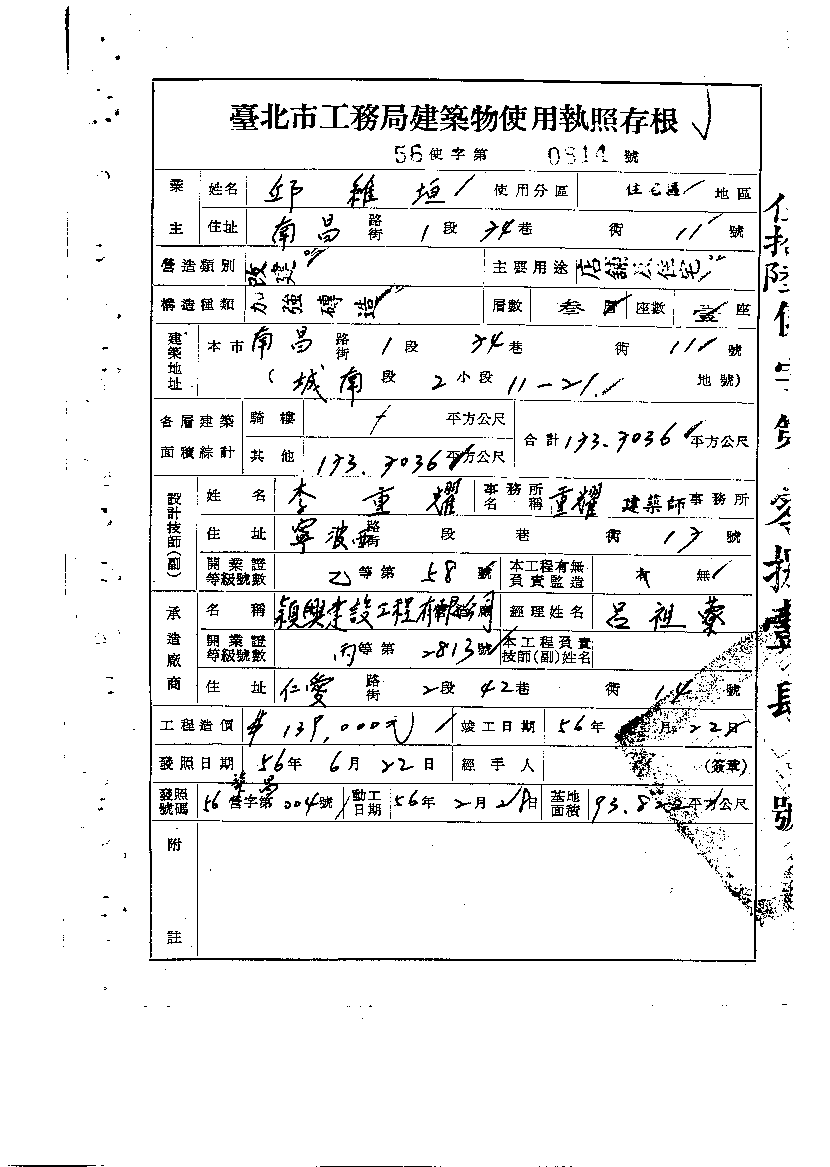 臺北市工務局建築物使用執照存根
56 使字第 0814 號
業主 姓名 邱維垣 使用分區 住已通 地區
住址 南昌 路街 1 段 34 巷 衖 11 號
營造類別 改建 主要用途 店舖 住宅
構造種類 加強磚造 層數 叁 層 座數 壹 座
建築地址 本市 南昌 路街 1 段 34 巷 衖 11 號
(城南 段 2 小段 11-21 地號)
各層建築面積綜計 騎樓 平方公尺 合計 133.3036 平方公尺
其他 133.3036 平方公尺
設計技師(副) 姓名 李重耀 事務所名稱 重耀 建築師 事務所
住址 寧波西 路街 段 巷 衖 13 號
開業證等級號數 乙 等第 58 號 本工程有無負責監造 有 無
承造廠商 名稱 穎興建設工程有限公司 經理姓名 呂祖
開業證等級號數 丙 等第 2813 號 本工程負責技師(副)姓名
住址 仁愛 路街 2 段 42 巷 衖 14 號
工程造價 # 139,000元 竣工日期 56 年 月 22 日
發照日期 56 年 6 月 22 日 經手人 (簽章)
發照號碼 56 營字第 004 號 動工日期 56 年 2 月 28 日 基地面積 93.8 平方公尺
附註
伍拾陸使字第零捌壹 號